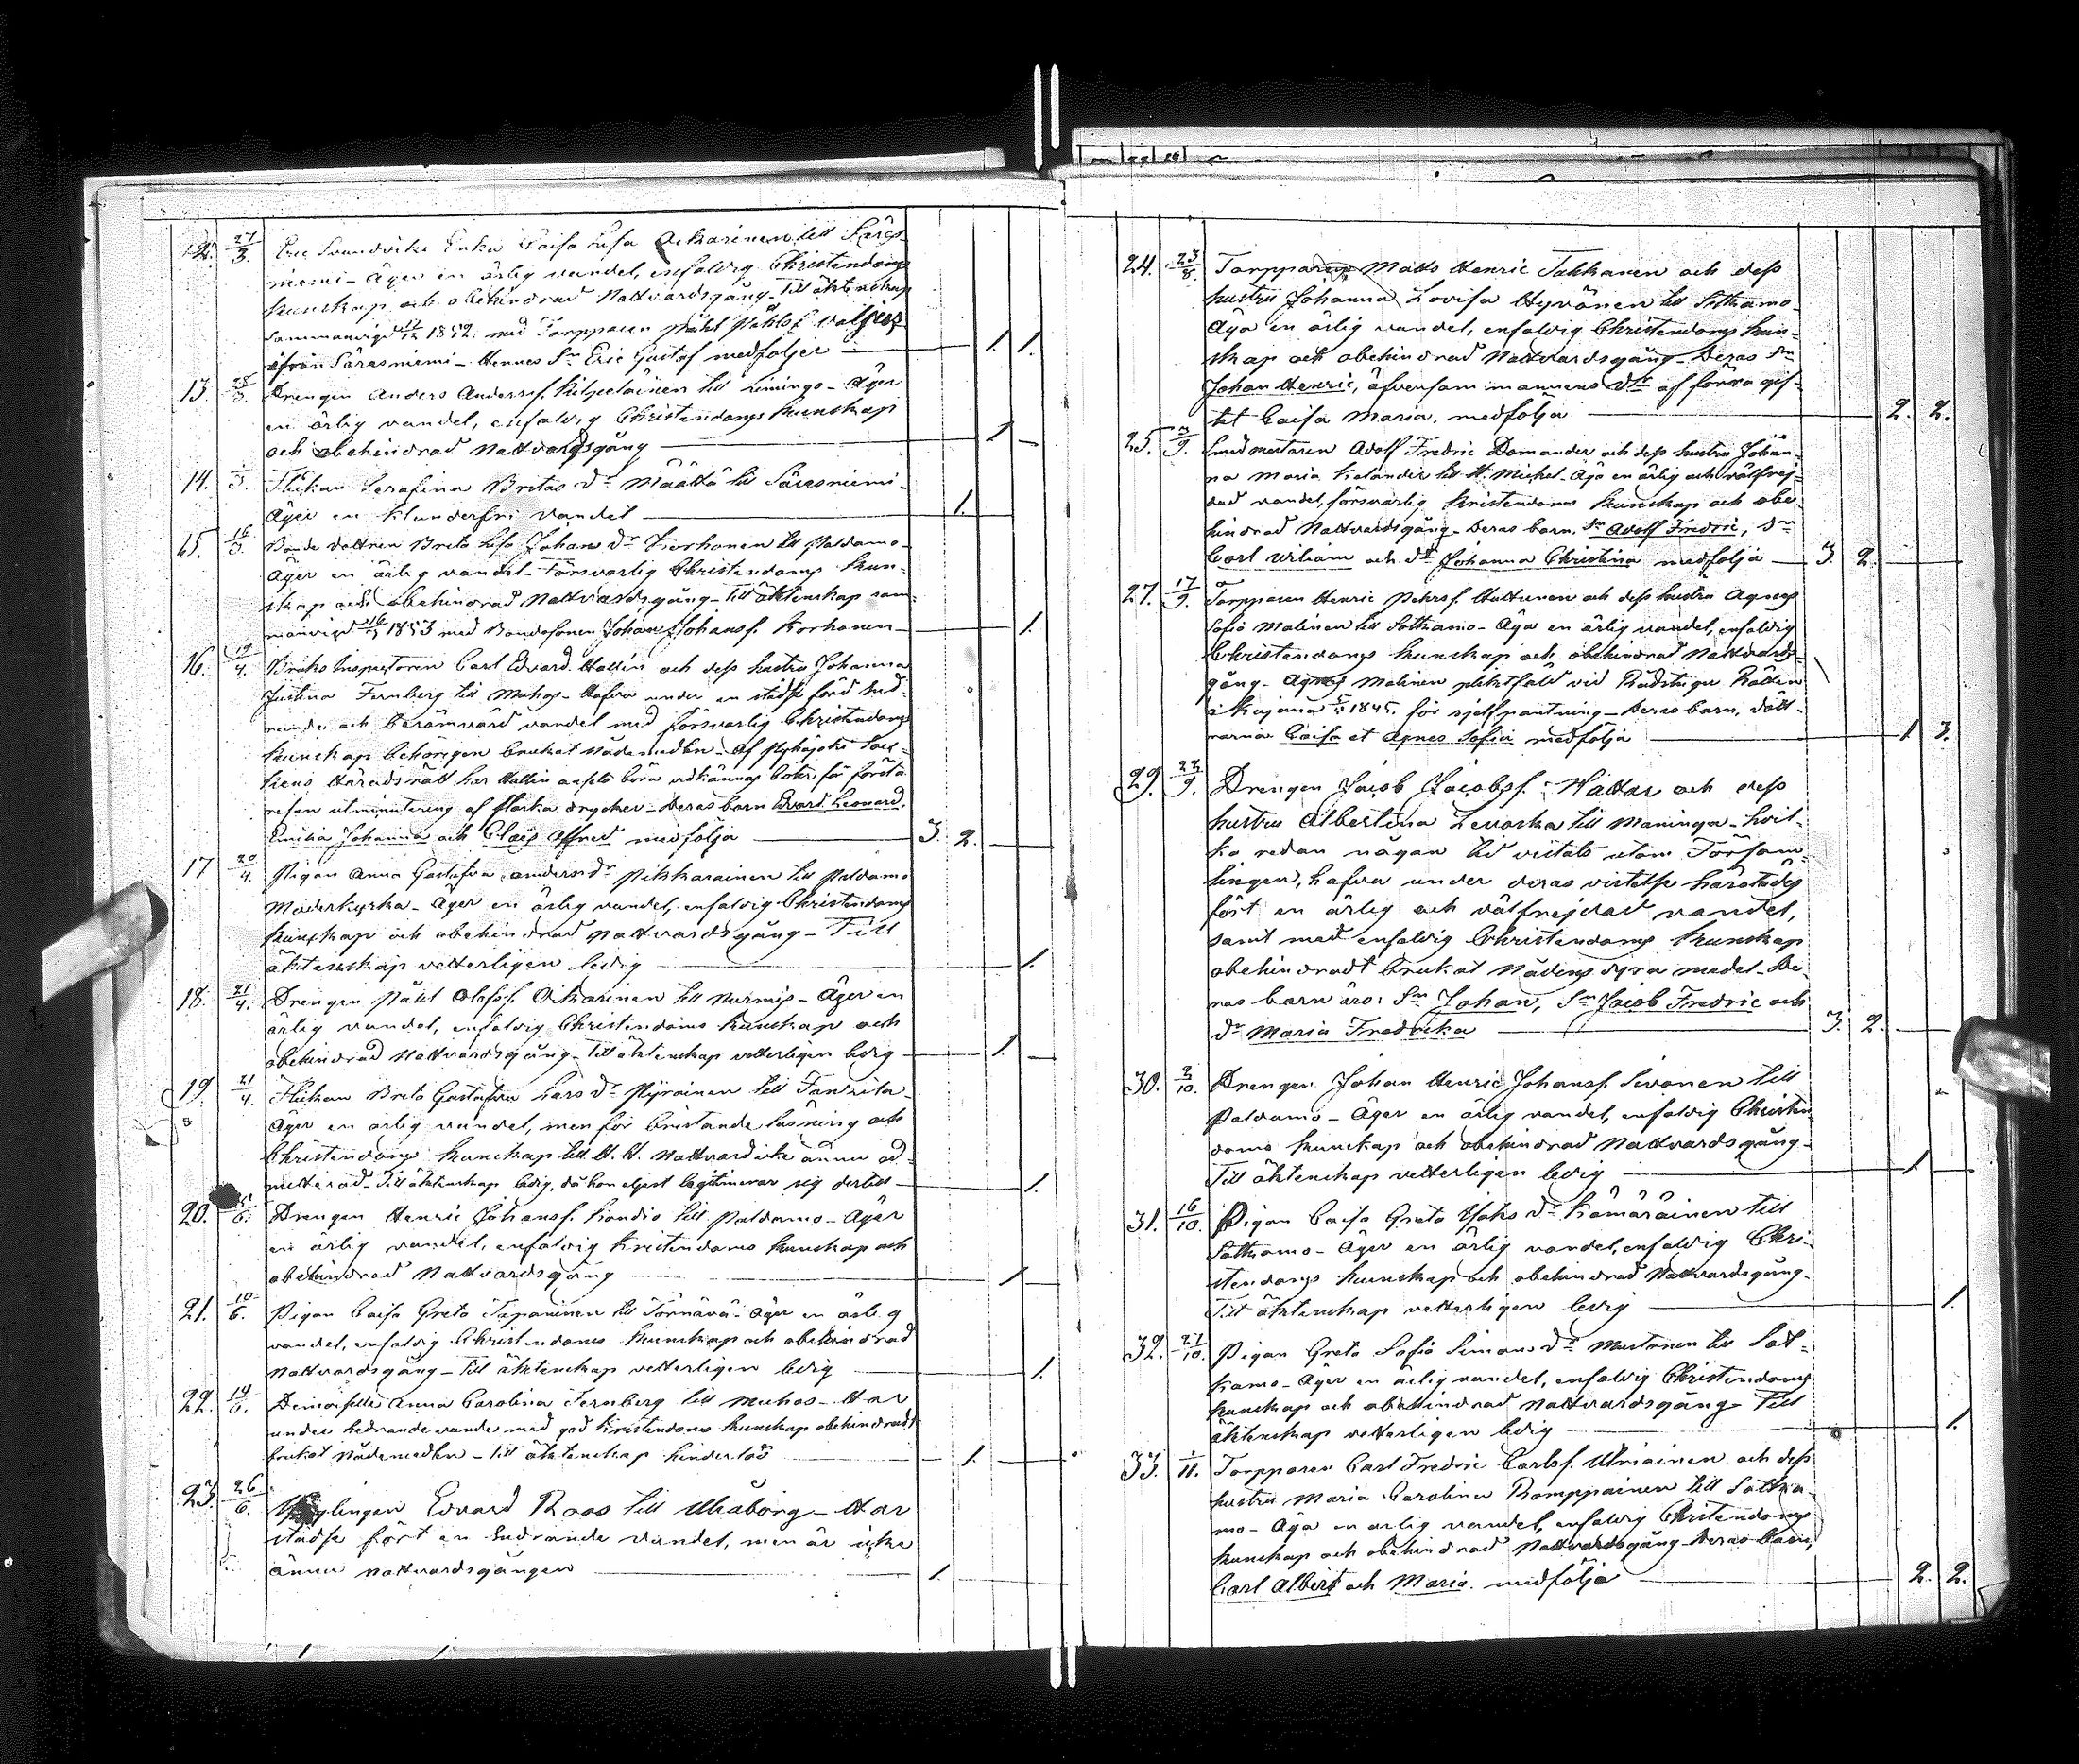 12. 27/3. Eric Svandvikes Enka Caisa Lisa Ockarinen till Säräs-
niemi - Äger en ärlig vandel, enfaldig Christendoms
kunskap och obehindrad Nattvardsgång - Till äktenskap
sammanvigd 1852. med Torpparen Påhl Påhlsf.
ifrån Säresniemi - Hennes Sn Eric Gustaf medföljer — 1. 1.
13. 28/3. Drengen Anders Andersf. Kilpeläinen till Limingo - Äger
en ärlig vandel, enfaldig Christendoms kunskap
och obehindrad Nattvardsgång — 1.
14. 1/3. Flickan Serafina Britas dr Määttä till Säresniemi -
Äger en klanderfri vandel — 1.
15. 16/3. Bonde dottren Brita Lisa Johans dr Korhonen till Paldamo -
Äger en ärlig vandel - Försvarlig Christendoms kun-
skap och obehindrad Nattvardsgång - Till äktenskap sam-
manvigd 1853 med Bondesonen Johan Johansf. Korhonen — 1.
16. 19/4. Bruks Inspectoren Carl Edvard Hallin och dess hustru Johanna
Justina Fernberg till Muhos - Hafva under en städse förd hed-
rande och berömvärd vandel med försvarlig Christendoms
kunskap behörigen brukat nådemedlen - Af Pyhäjoki Soc-
kens Häradsrätt har Hallin
utminutering af starka drycker - Deras barn Evard Leonard,
Emilia Johanna och Claes Alfred medfölja — 3. 2.
17 20/4. Pigan Anna Gustafva Anders dr Pikkarainen till Paldamo
Moderkyrka - Äger en ärlig vandel, enfaldig Christendoms
kunskap och obehindrad Nattvardsgång - Till
äktenskap vetterligen ledig — 1.
18. 21/4. Drengen Påhl Olofsf. Oikarinen till Nurmis - Äger en
ärlig vandel, enfaldig Christendoms kunskap och
obehindrad Nattvardsgång - Till äktenskap vetterligen ledig — 1.
19. 21/4. Flickan Brita Gustafva Lars dr Pyrainen till
Äger en ärlig vandel, men för bristande läsning och
Christendoms kunskap till H. H. Nattvard icke ännu ad-
mitterad - Till äktenskap ledig, då hon eljest legitimerar sig dertill — 1.
20. Drengen Henric Johansf. Kandio till Paldamo - Äger
en ärlig vandel, enfaldig Kristendoms kunskap och
obehindrad Nattvardsgång — 1.
21. 10/6. Pigan Caisa Greta Tapaninen till Törnävä - Äger en ärlig
vandel, enfaldig Christendoms kunskap och obehindrad
Nattvardsgång - Till äktenskap vetterligen ledig — 1.
22. 14/6. Demoiselle Anna Carolina Fernberg till Muhos - Har
under hedrande vandel med god Kristendoms kunskap obehindradt
brukat Nådemedlen - till äktenskap hinderlös — 1.
23. 26/6. Ynglingen Edvard Roos till Uleåborg - Har
städse fört en hedrande vandel, men är icke
ännu nattvardsgången — 1.
24. 23/8. Torpparen Matts Henric Takkanen och dess
hustru Johanna Lovisa Hyvönen till Sotkamo -
Äga en ärlig vandel, enfaldig Christendoms kun-
skap och obehindrad Nattvardsgång - Deras Sn
Johan Henric, äfvensom mannens dr af förra gif-
tet Caisa Maria, medfölja — 2. 2.
25. 7/9. Smedmästaren Adolf Fredric Domander och dess hustru Johan-
na Maria Kelander till St. Michel - Äga en ärlig och välfrej-
dad vandel, försvarlig Kristendoms kunskap och obe-
hindrad Nattvardsgång - Deras barn, Sn Adolf Fredric, Sn
Carl Wiliam och dr Johanna Christina medfölja — 3. 2.
27. 17/9. Torpparen Henric Pehrsf. Huttunen och dess hustru Agnes
Sofia Malinen till Sotkamo - Äga en ärlig vandel, enfaldig
Christendoms kunskap och obehindrad Nattvards-
gång - Agnes Malinen pliktfäld vid Rådstugu Rätten
i Kajana 1845. för sjelfpantning - Deras barn, dött-
rarna Caisa et Agnes Sofia medfölja — 1 3.
29. 22/9. Drengen Jacob Jacobsf. Hattar och dess
hustru Albertina Levoska till Maninga - hvil-
ka redan någon tid vistats utom Försam-
lingen, hafva under deras vistelse härstädes
fört en ärlig och välfrejdad vandel,
samt med enfaldig Christendoms kunskap
obehindradt brukat Nådens dyra medel - De-
ras barn äro: Sn Johan, Sn Jacob Fredric och
dr Maria Fredrika — 3. 2.
30. 2/10. Drengen Johan Henric Johansf. Sivonen till
Paldamo - Äger en ärlig vandel, enfaldig Christen-
doms kunskap och obehindrad Nattvardsgång -
Till äktenskap vetterligen ledig — 1.
31. 16/10. Pigan Caisa Greta Isaks dr Kämäräinen till
Sotkamo - Äger en ärlig vandel, enfaldig Chri-
stendoms kunskap och obehindrad Nattvardsgång -
Till äktenskap vetterligen ledig — 1.
32. 21/10. Pigan Greta Sofia Simons dr Mustonen till Sot-
kamo - Äger en ärlig vandel, enfaldig Christendoms
kunskap och obehindrad Nattvardsgång - Till
äktenskap vetterligen ledig — 1.
33. 1/11. Torpparen Carl Fredric Carlsf. Mriainen och dess
hustru Maria Carolina Romppainen till Sotka-
mo - Äga en ärlig vandel, enfaldig Christendoms
kunskap och obehindrad Nattvardsgång - Deras barn,
Carl Albert och Maria medfölja — 2. 2.